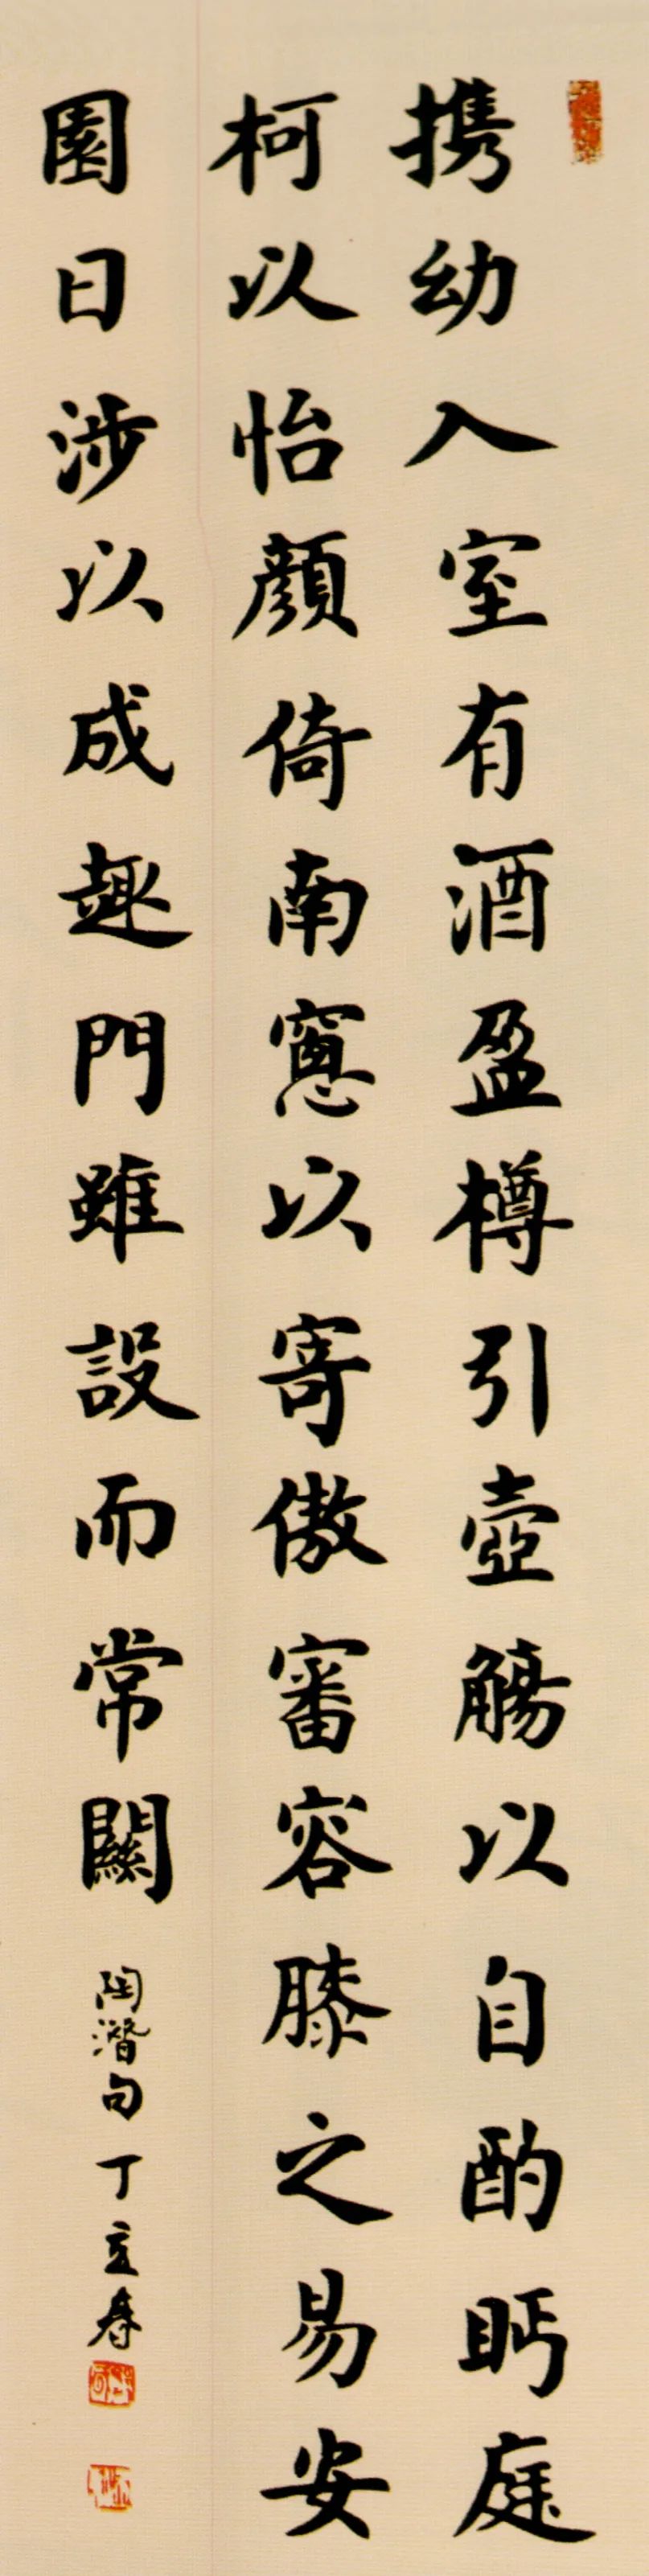 携幼入室有酒盈樽引壺觴以自酌眄庭
柯以怡顏倚南窻以寄傲審容膝之易安
園日涉以成趣門雖設而常關
陶潛句 丁立寿